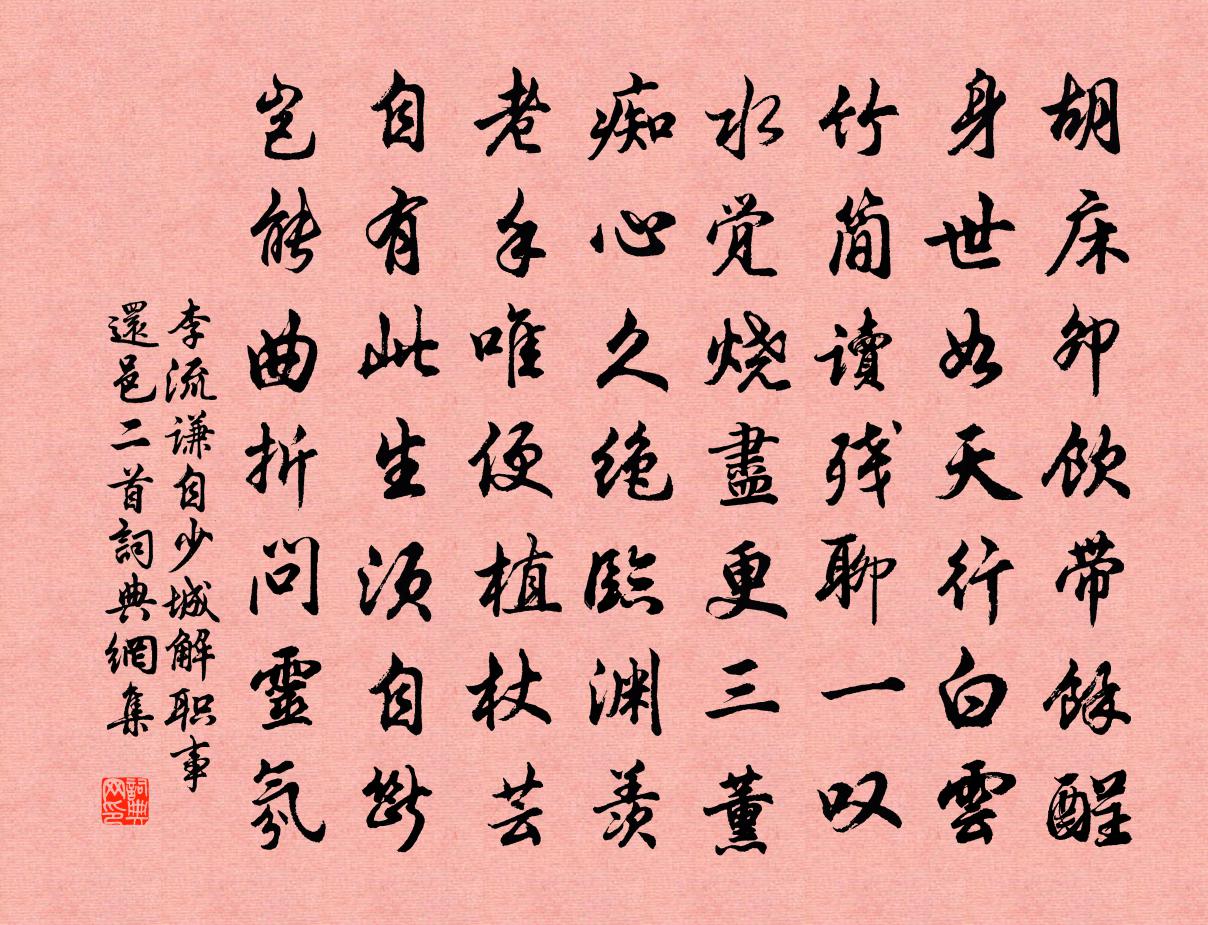 胡床卯飲带餘醒
身世如天行白雲
竹简讀残聊一叹
水觉烧盡更三薰
痴心久绝臨渊羨
老手唯便植杖芸
自有此生须自断
岂能曲折问靈氛
李流谦自少城解职事
還邑二首詞典網集
詞典
网印